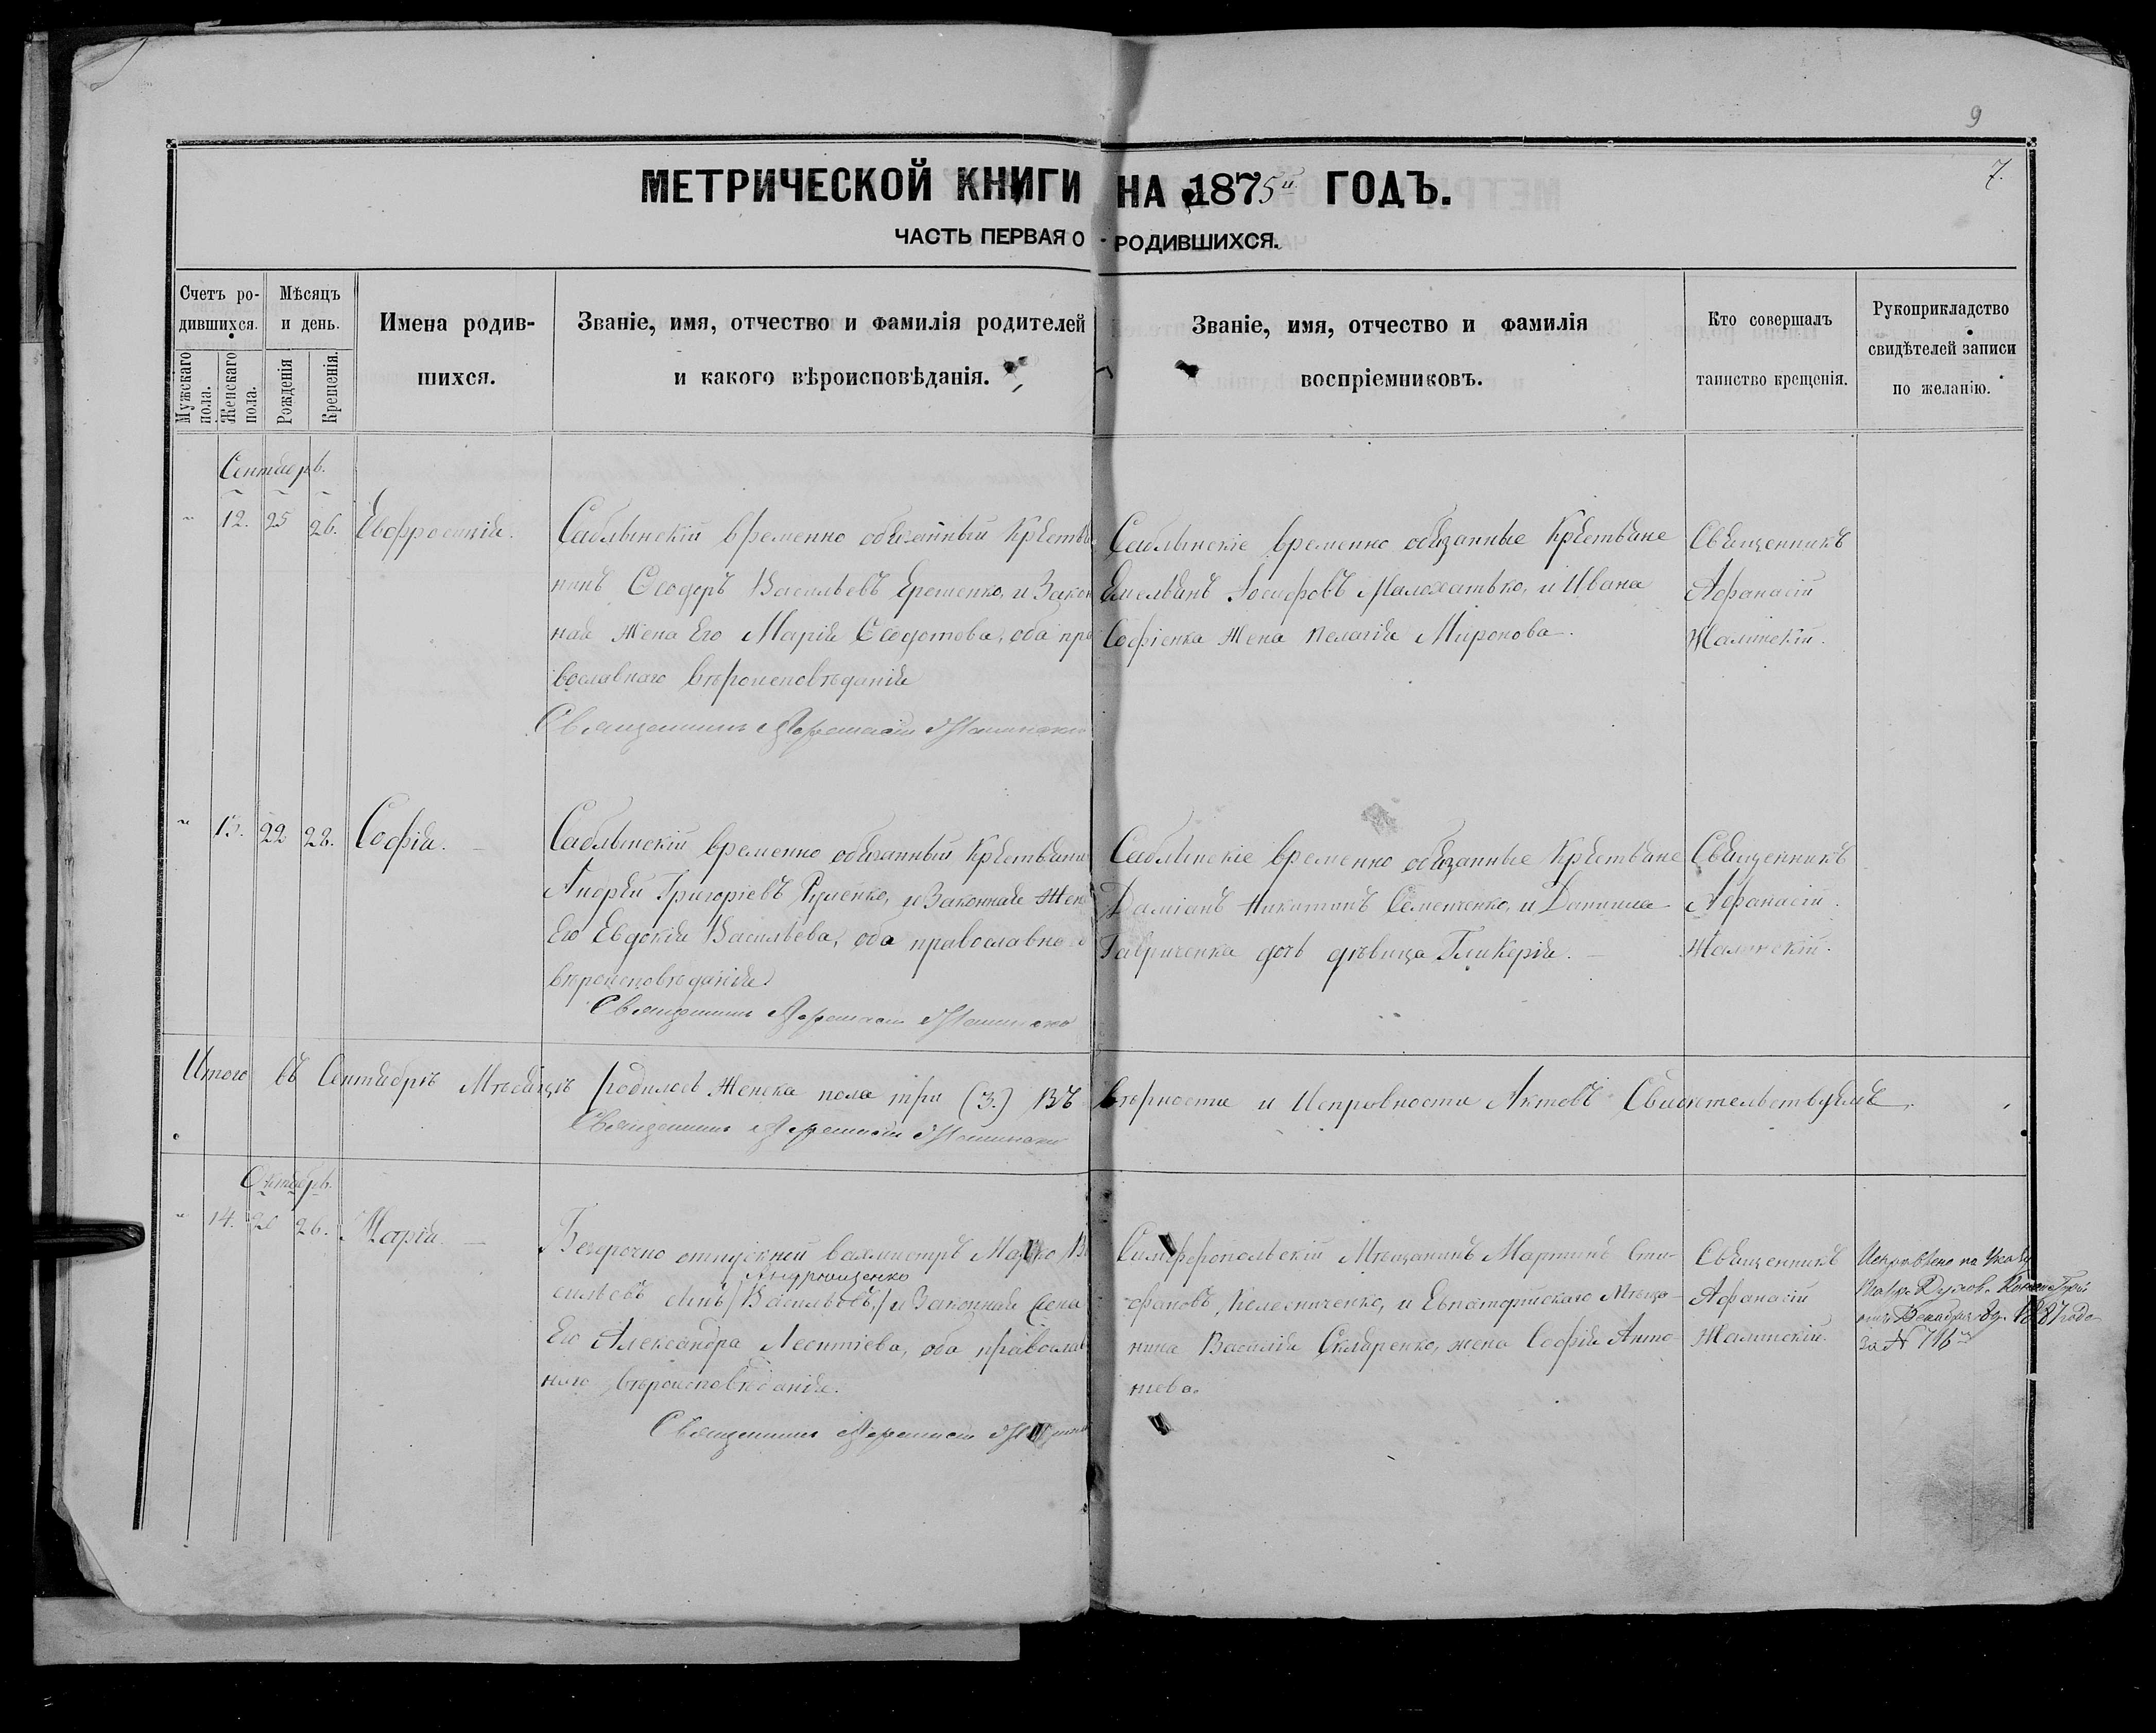 9
7.
МЕТРИЧЕСКОЙ КНИГИ НА 1875й ГОДЪ.
ЧАСТЬ ПЕРВАЯ О РОДИВШИХСЯ.
Счетъ ро-
дившихся.
Мужскаго пола.
Женскаго пола.
Мѣсяцъ
и день.
Рожденія
Крещенія.
Имена родив-
шихся.
Званіе, имя, отчество и фамилія родителей
и какого вѣроисповѣданія.
Званіе, имя, отчество и фамилія
воспріемниковъ.
Кто совершалъ
таинство крещенія.
Рукоприкладство
свидѣтелей записи
по желанію.
Сентябрь.
12. 25 26. Евфросинія.
Саблынскій временно обязанный Крестья
нинъ Ѳеодоръ Васильевъ Ерошенко, и Закон
ная жена Его Марія Ѳеодотова, оба пра
вославнаго вѣроисповѣданія
Священникъ Афанасій Жалинскій
Саблынскіе временно обязанные Крестьяне
Емельянъ Іосифовъ Малохатько, и Ивана
Софіенка жена Пелагія Миронова.
Священникъ
Афанасій
Жалинскій.
13. 22 28. Софія.
Саблынскій временно обязанный Крестьянин
Андрей Григорієвъ Руленко, и Законная жен
Его Евдокія Васильева, оба православнаго
вѣроисповѣданія
Священникъ Афанасій Жалинскій
Саблынскіе временно обязанные Крестьяне
Даміанъ Никитинъ Семенченко, и Даниила
Гавриченка дочь дѣвица Гликерія.
Священникъ
Афанасій
Жалинскій.
Итого въ Сентябрѣ Мѣсяцѣ родилось Женска пола три (3.) Въ вѣрности и Исправности Актовъ Свидѣтельствуемъ.
Священникъ Афанасій Жалинскій
Октябрь.
14. 26. Марія.
Безсрочно отпускной вахмистръ Марко Ва
сильевъ сынъ /Васильевъ,/ и Законная жена
Андрющенко
Его Александра Леонтіева, оба православ
наго вѣроисповѣданія.
Священникъ Афанасій
Симферопольскій Мѣщанинъ Мартинъ Сти-
фановъ, Колесниченко, и Евпаторійскаго Мѣща-
нина Василія Скляренко, жена Софія Анто-
нова.
Священникъ
Афанасій
Жалинскій.
Исправлено по Указу
Тавр. Духов. Консисторіи
отъ Декабря 1887 года
за № 716